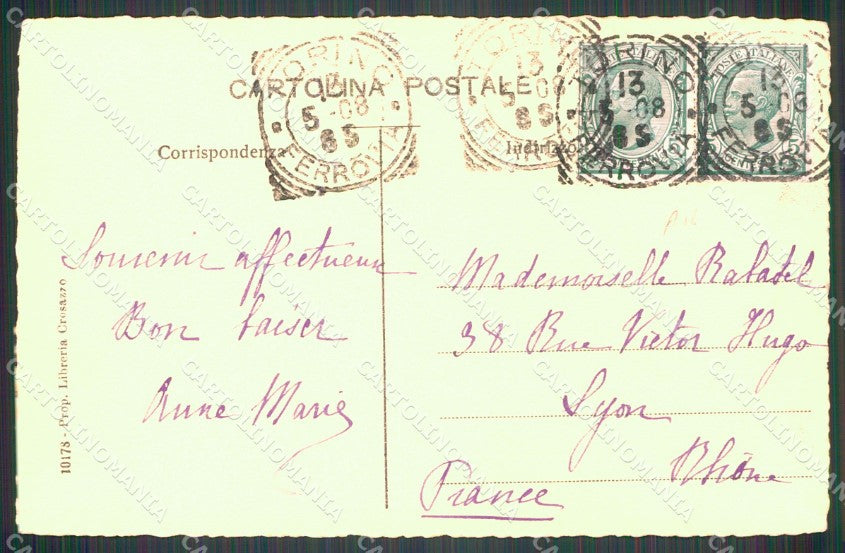 CARTOLINA POSTALE
Corrispondenza
Indirizzo
TORINO
13
5-08
8S
FERROVIA
TORINO
13
5-08
8S
FERROVIA
TORINO
13
5-08
8S
FERROVIA
POSTE ITALIANE
13
5-08
8S
FERROVIA
Souvenir affectueux
Bon baiser
Anne Marie
Mademoiselle Rabatel
38 Rue Victor Hugo
Lyon
Rhône
France
10178 - Prop. Libreria Crosazzo
CARTOLINOMANIA